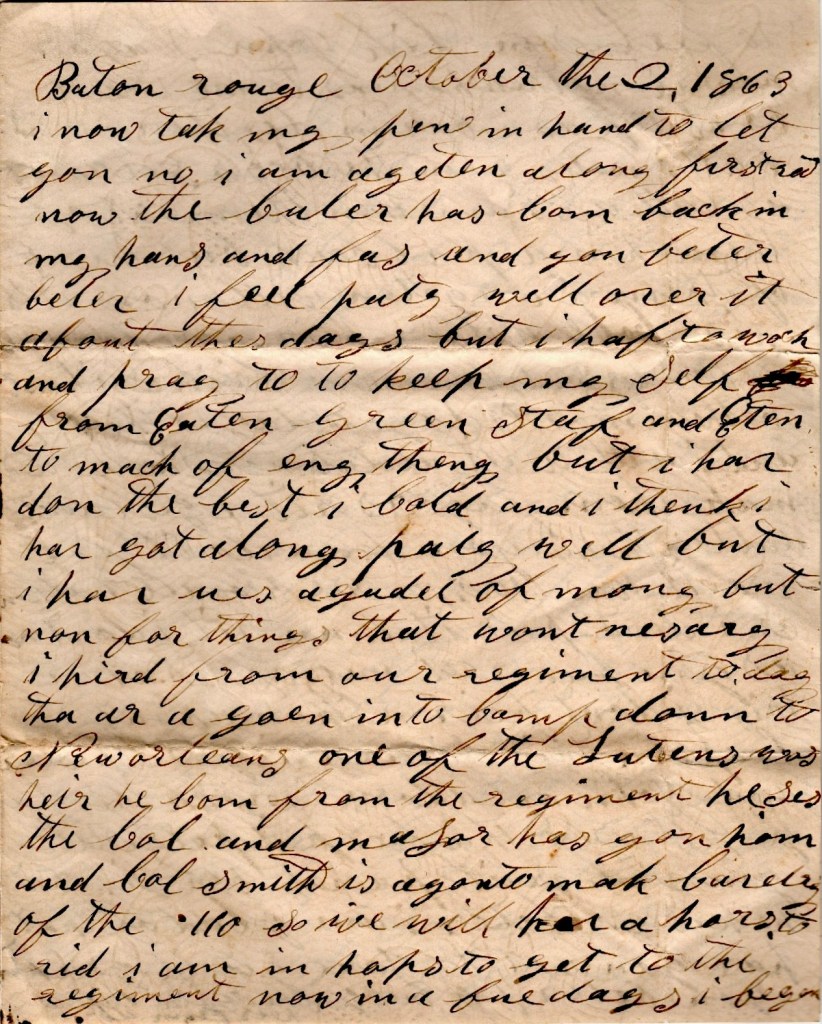 Baton rouge October the 2, 1863
i now tak my pen in hand to let
you no i am a geten along first rat
now the culer has com back in
my hans and fas and you beter
beter i feel paty well over it
about thes days but i haf to woch
and pray to to keep my self
from Eaten Green Staf and Eten
to mach of eny theng but i hav
don the best i cold and i thenk i
hav got along paty well but
i hav ues a gudel of mony but
non for things that wont nesary
i hird from our regiment to day
tha ar a goen into camp down to
Neworleans one of the Lutens was
heir he com from the regiment he ses
the Col and major has gon hom
and Col Smith is a gonto mak cavelry
of the 110 so we will hav a hors to
rid i am in hops to get to the
regiment now in a fue days i began